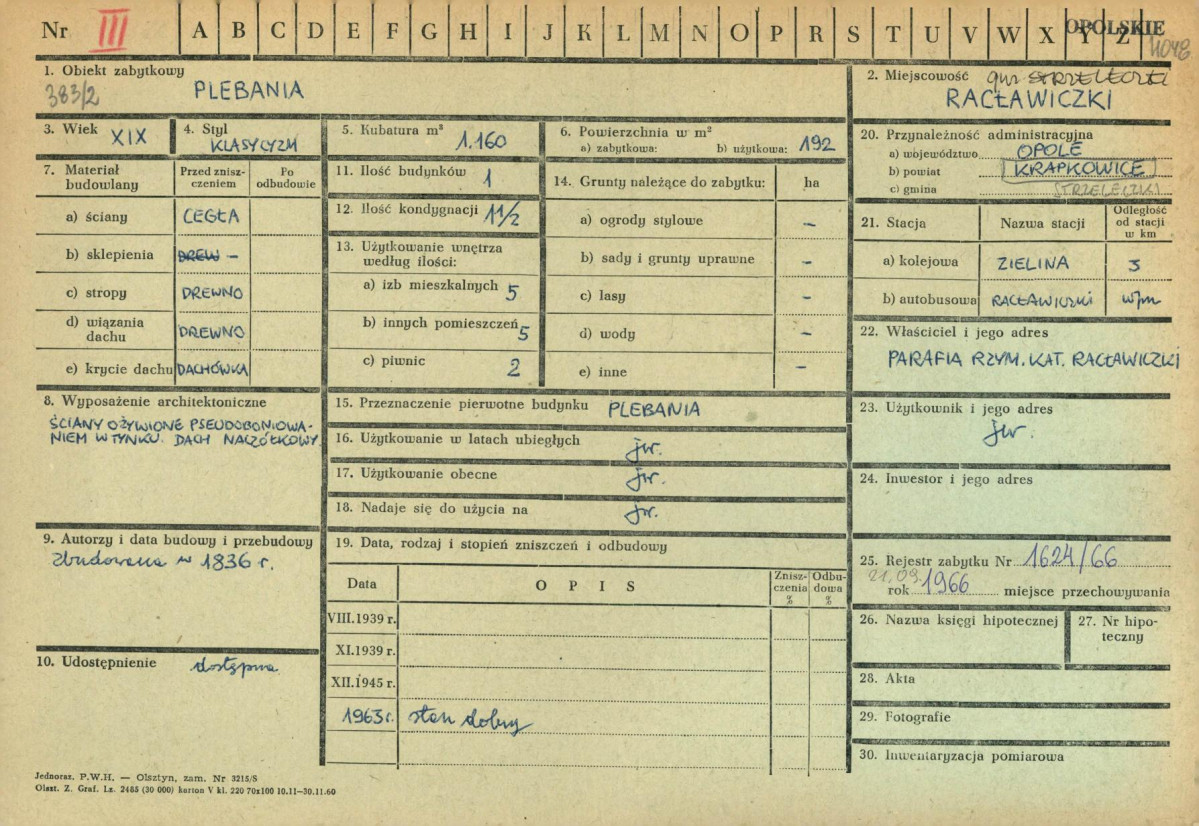 Nr III A B C D E F G H I J K L M N O P R S T U V W X Y Z OPOLSKIE
1. Obiekt zabytkowy
383/2 PLEBANIA
2. Miejscowość gm STRZELECZKI
RACŁAWICZKI
3. Wiek XIX
4. Styl
KLASYCYZM
5. Kubatura m³ 1.160
6. Powierzchnia w m²
a) zabytkowa: b) użytkowa: 192
20. Przynależność administracyjna
a) województwo OPOLE
b) powiat KRAPKOWICE
c) gmina STRZELECZKI
7. Materiał budowlany
Przed znisz-
czeniem
Po
odbudowie
a) ściany CEGŁA
b) sklepienia DREW –
c) stropy DREWNO
d) wiązania
dachu DREWNO
e) krycie dachu DACHÓWKA
11. Ilość budynków 1
12. Ilość kondygnacji 1 1/2
13. Użytkowanie wnętrza
według ilości:
a) izb mieszkalnych 5
b) innych pomieszczeń 5
c) piwnic 2
14. Grunty należące do zabytku: ha
a) ogrody stylowe –
b) sady i grunty uprawne –
c) lasy –
d) wody –
e) inne –
21. Stacja Nazwa stacji
Odległość
od stacji
w km
a) kolejowa ZIELINA 3
b) autobusowa RACŁAWICZKI w/m
22. Właściciel i jego adres
PARAFIA RZYM. KAT. RACŁAWICZKI
8. Wyposażenie architektoniczne
ŚCIANY OŻYWIONE PSEUDOBONIOWA-
NIEM W TYNKU. DACH NACZÓŁKOWY
15. Przeznaczenie pierwotne budynku PLEBANIA
16. Użytkowanie w latach ubiegłych jw.
17. Użytkowanie obecne jw.
18. Nadaje się do użycia na jw.
23. Użytkownik i jego adres
jw.
24. Inwestor i jego adres
9. Autorzy i data budowy i przebudowy
Zbudowana w 1836 r.
10. Udostępnienie dostępna
19. Data, rodzaj i stopień zniszczeń i odbudowy
Data OPIS
Znisz-
czenia
%
Odbu-
dowa
%
VIII.1939 r.
XI.1939 r.
XII.1945 r.
1963 r. stan dobry
25. Rejestr zabytku Nr 1624/66
21.09.
rok 1966 miejsce przechowywania
26. Nazwa księgi hipotecznej
27. Nr hipo-
teczny
28. Akta
29. Fotografie
30. Inwentaryzacja pomiarowa
Jednoraz. P.W.H. — Olsztyn, zam. Nr 3215/S
Olszt. Z. Graf. Lz. 2485 (30 000) karton V kl. 220 70x100 10.11—30.11.60